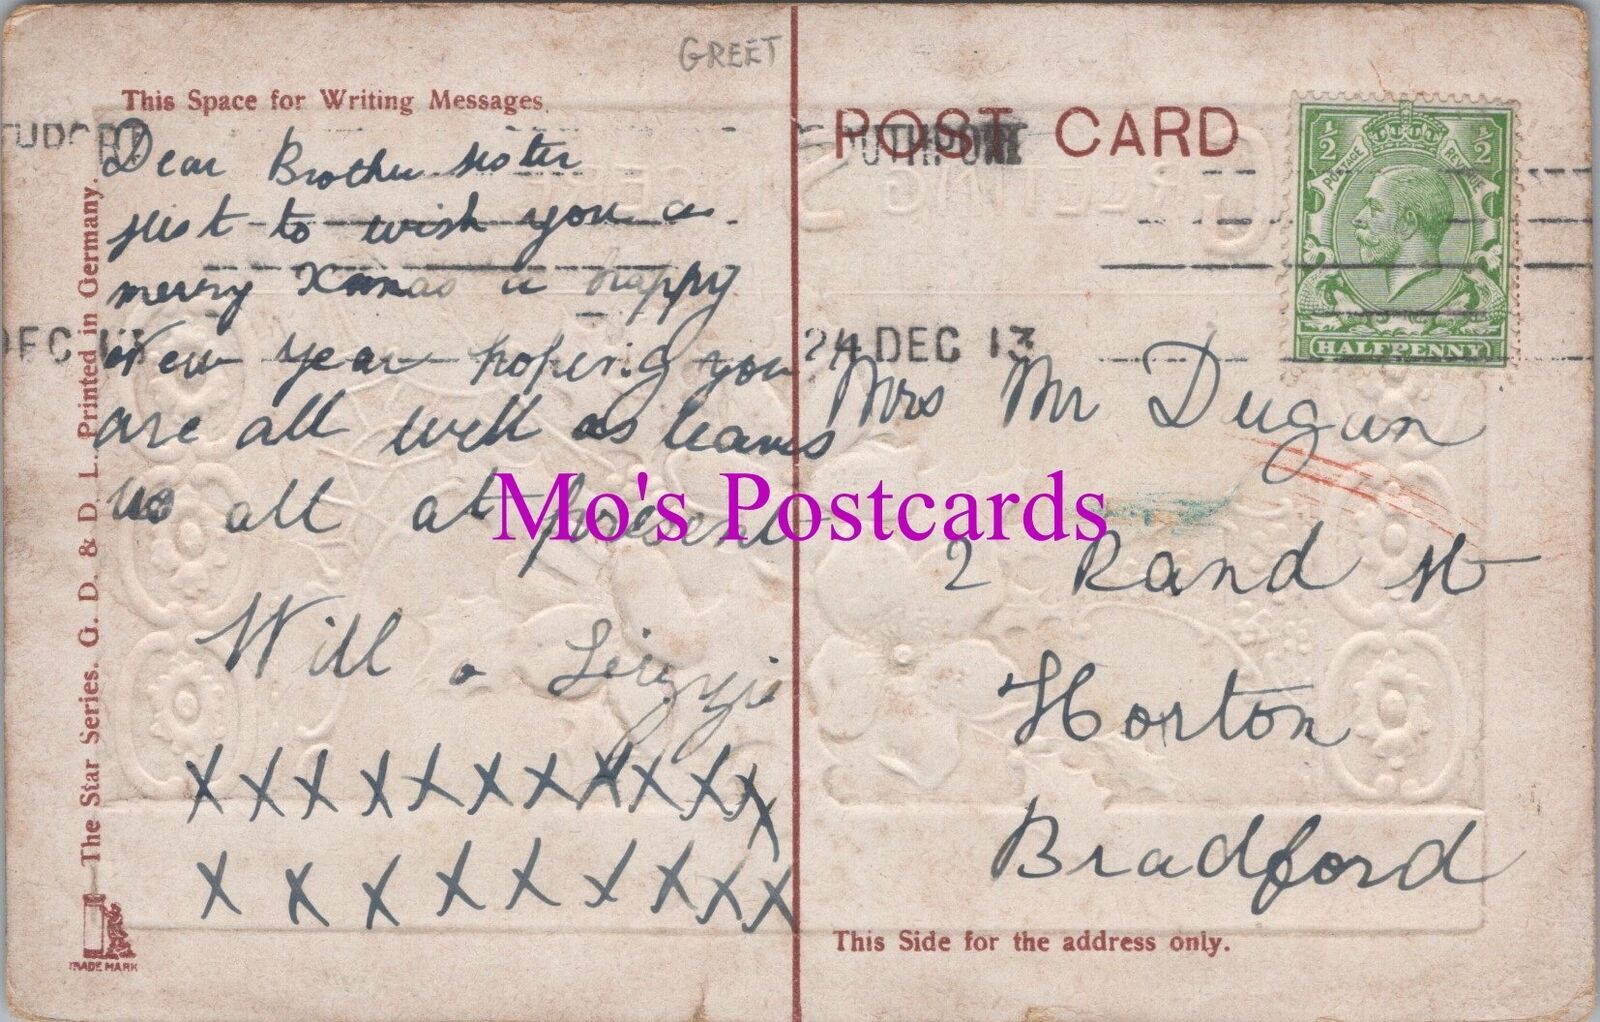 GREET
This Space for Writing Messages.
Dear Brother sister
just to wish you a
merry Xmas a happy
New year hopeing you
are all well as leaves
us all at present
Will a Lizzie
X X X X X X X X X X X
X X X X X X X X X
The Star Series. G. D. & D. L. Printed in Germany.
TRADE MARK
POST CARD
24 DEC 13
DEC 13
½ ½
POSTAGE REVENUE
HALFPENNY
Mrs Mr Dugan
2 Rand St
Horton
Bradford
This Side for the address only.
Mo's Postcards